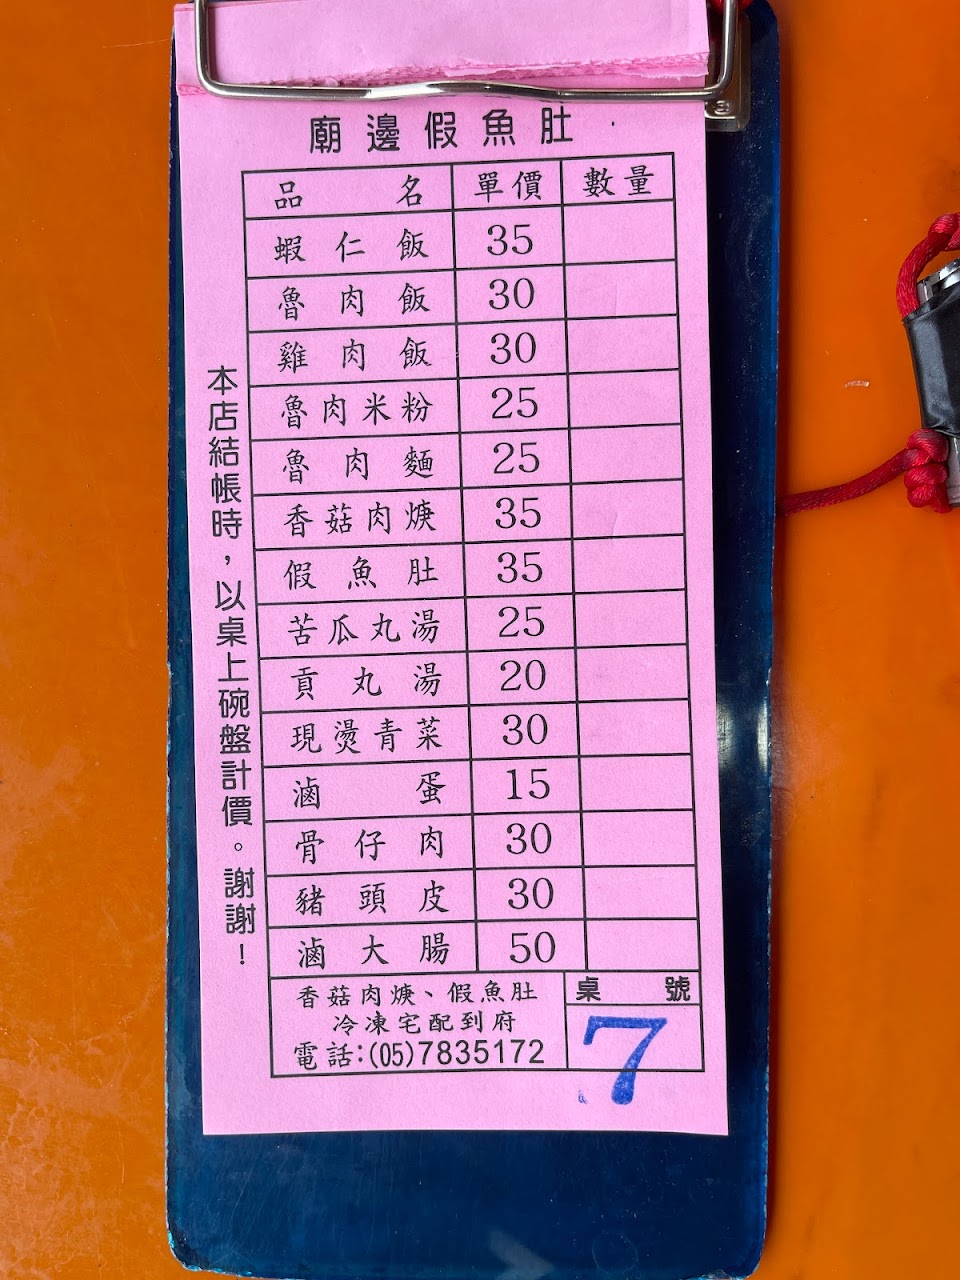 廟邊假魚肚
品名 單價 數量
蝦仁飯 35
魯肉飯 30
雞肉飯 30
魯肉米粉 25
魯肉麵 25
香菇肉焿 35
假魚肚 35
苦瓜丸湯 25
貢丸湯 20
現燙青菜 30
滷蛋 15
骨仔肉 30
豬頭皮 30
滷大腸 50
香菇肉焿、假魚肚
冷凍宅配到府
電話:(05)7835172
桌號
7
本店結帳時，以桌上碗盤計價。謝謝！